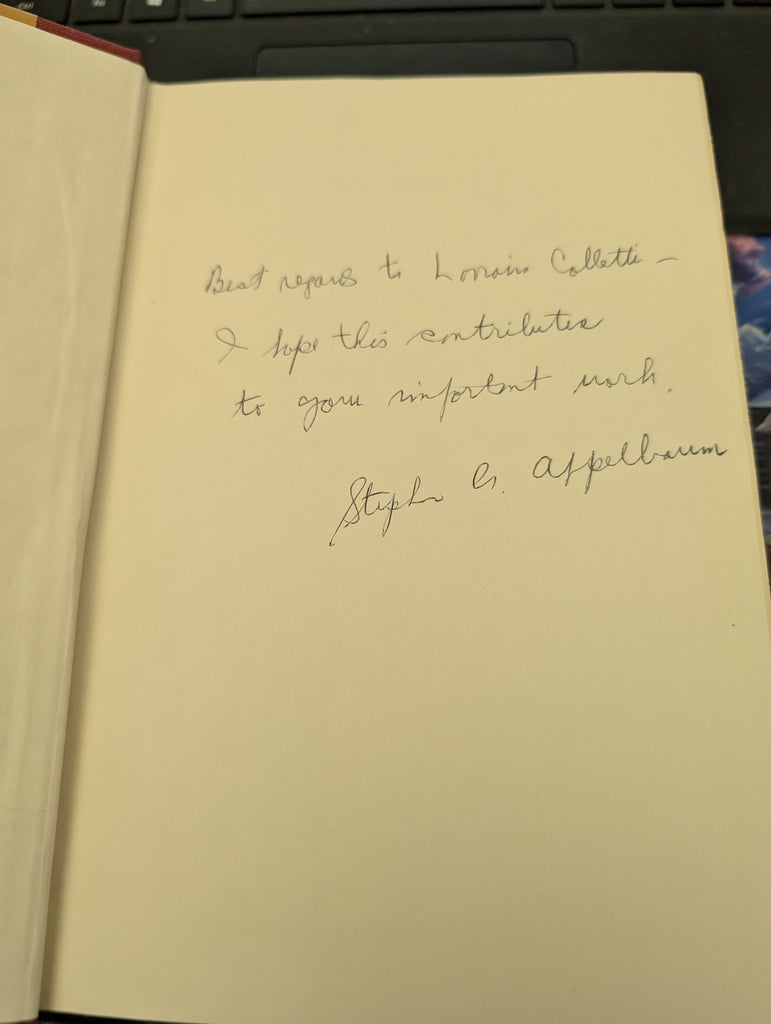 Best regards to Lorrain Colletti –
I hope this contributes
to your important work.
Stephen A. Appelbaum